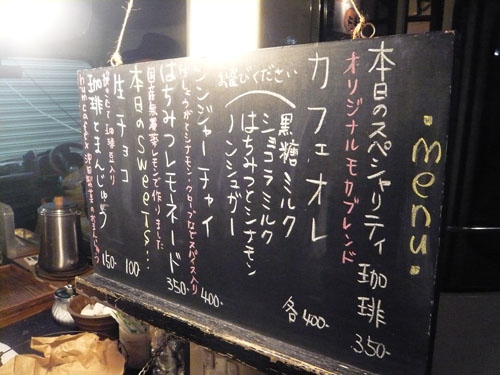 ・menu・
本日のスペシャリティ珈琲 350-
オリジナルモカブレンド
カフェオレ 各400-
黒糖ミルク
ショコラミルク
はちみつとシナモン
ノンシュガー
お選びください
ジンジャーチャイ 400-
しょうがとシナモン・クローブなどスパイス入り
はちみつレモネード 350-
国産無農薬レモンで作りました
本日のsweets!!
生チョコ 100
珈琲豆入り
珈琲とまんじゅう 150-